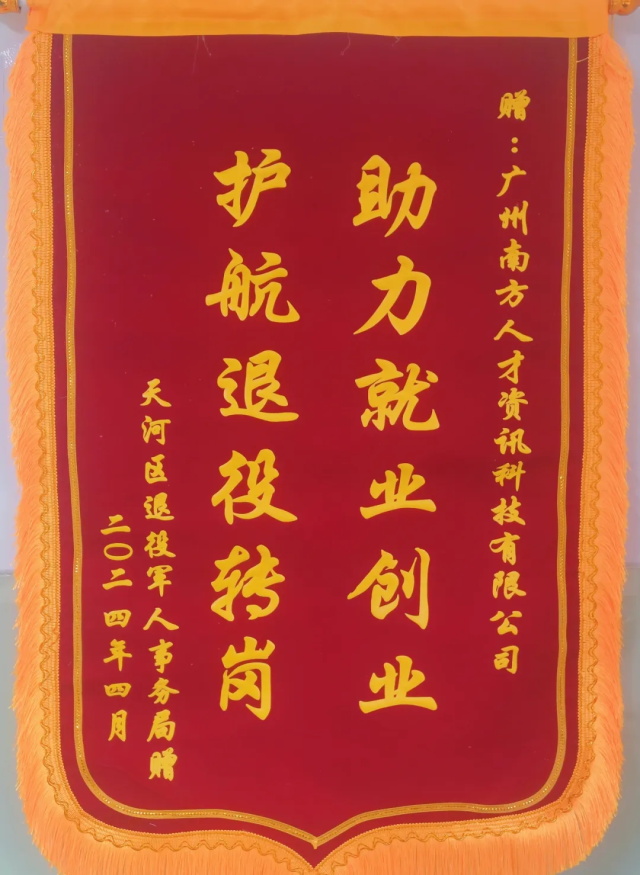 赠：广州南方人才资讯科技有限公司
助力就业创业
护航退役转岗
天河区退役军人事务局赠
二〇二四年四月